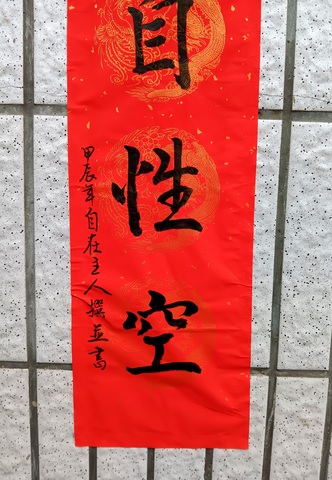 自性空
甲辰年自在主人撰並書